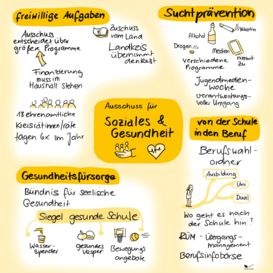 freiwillige Aufgaben
Ausschuss
entscheidet über
größere Programme
Zuschuss
vom Land
Landkreis
übernimmt
den Rest
Finanzierung
muss im
Haushalt stehen
18 ehrenamtliche
Kreisrätinnen/räte
tagen 6x im Jahr
Suchtprävention
Alkohol
Nikotin
Drogen
Medien
verschiedene
Programme
Jugendmedien-
woche
verantwortungs-
voller Umgang
Ausschuss für
Soziales &
Gesundheit
von der Schule
in den Beruf
Berufswahl-
ordner
Ausbildung
Uni
Dual
Wo geht es nach
der Schule hin?
Berufsinfobörse
Gesundheitsfürsorge
Bündnis für seelische
Gesundheit
Siegel gesunde Schule
Wasser-
spender
gesundes
Vesper
Bewegungs-
angebote